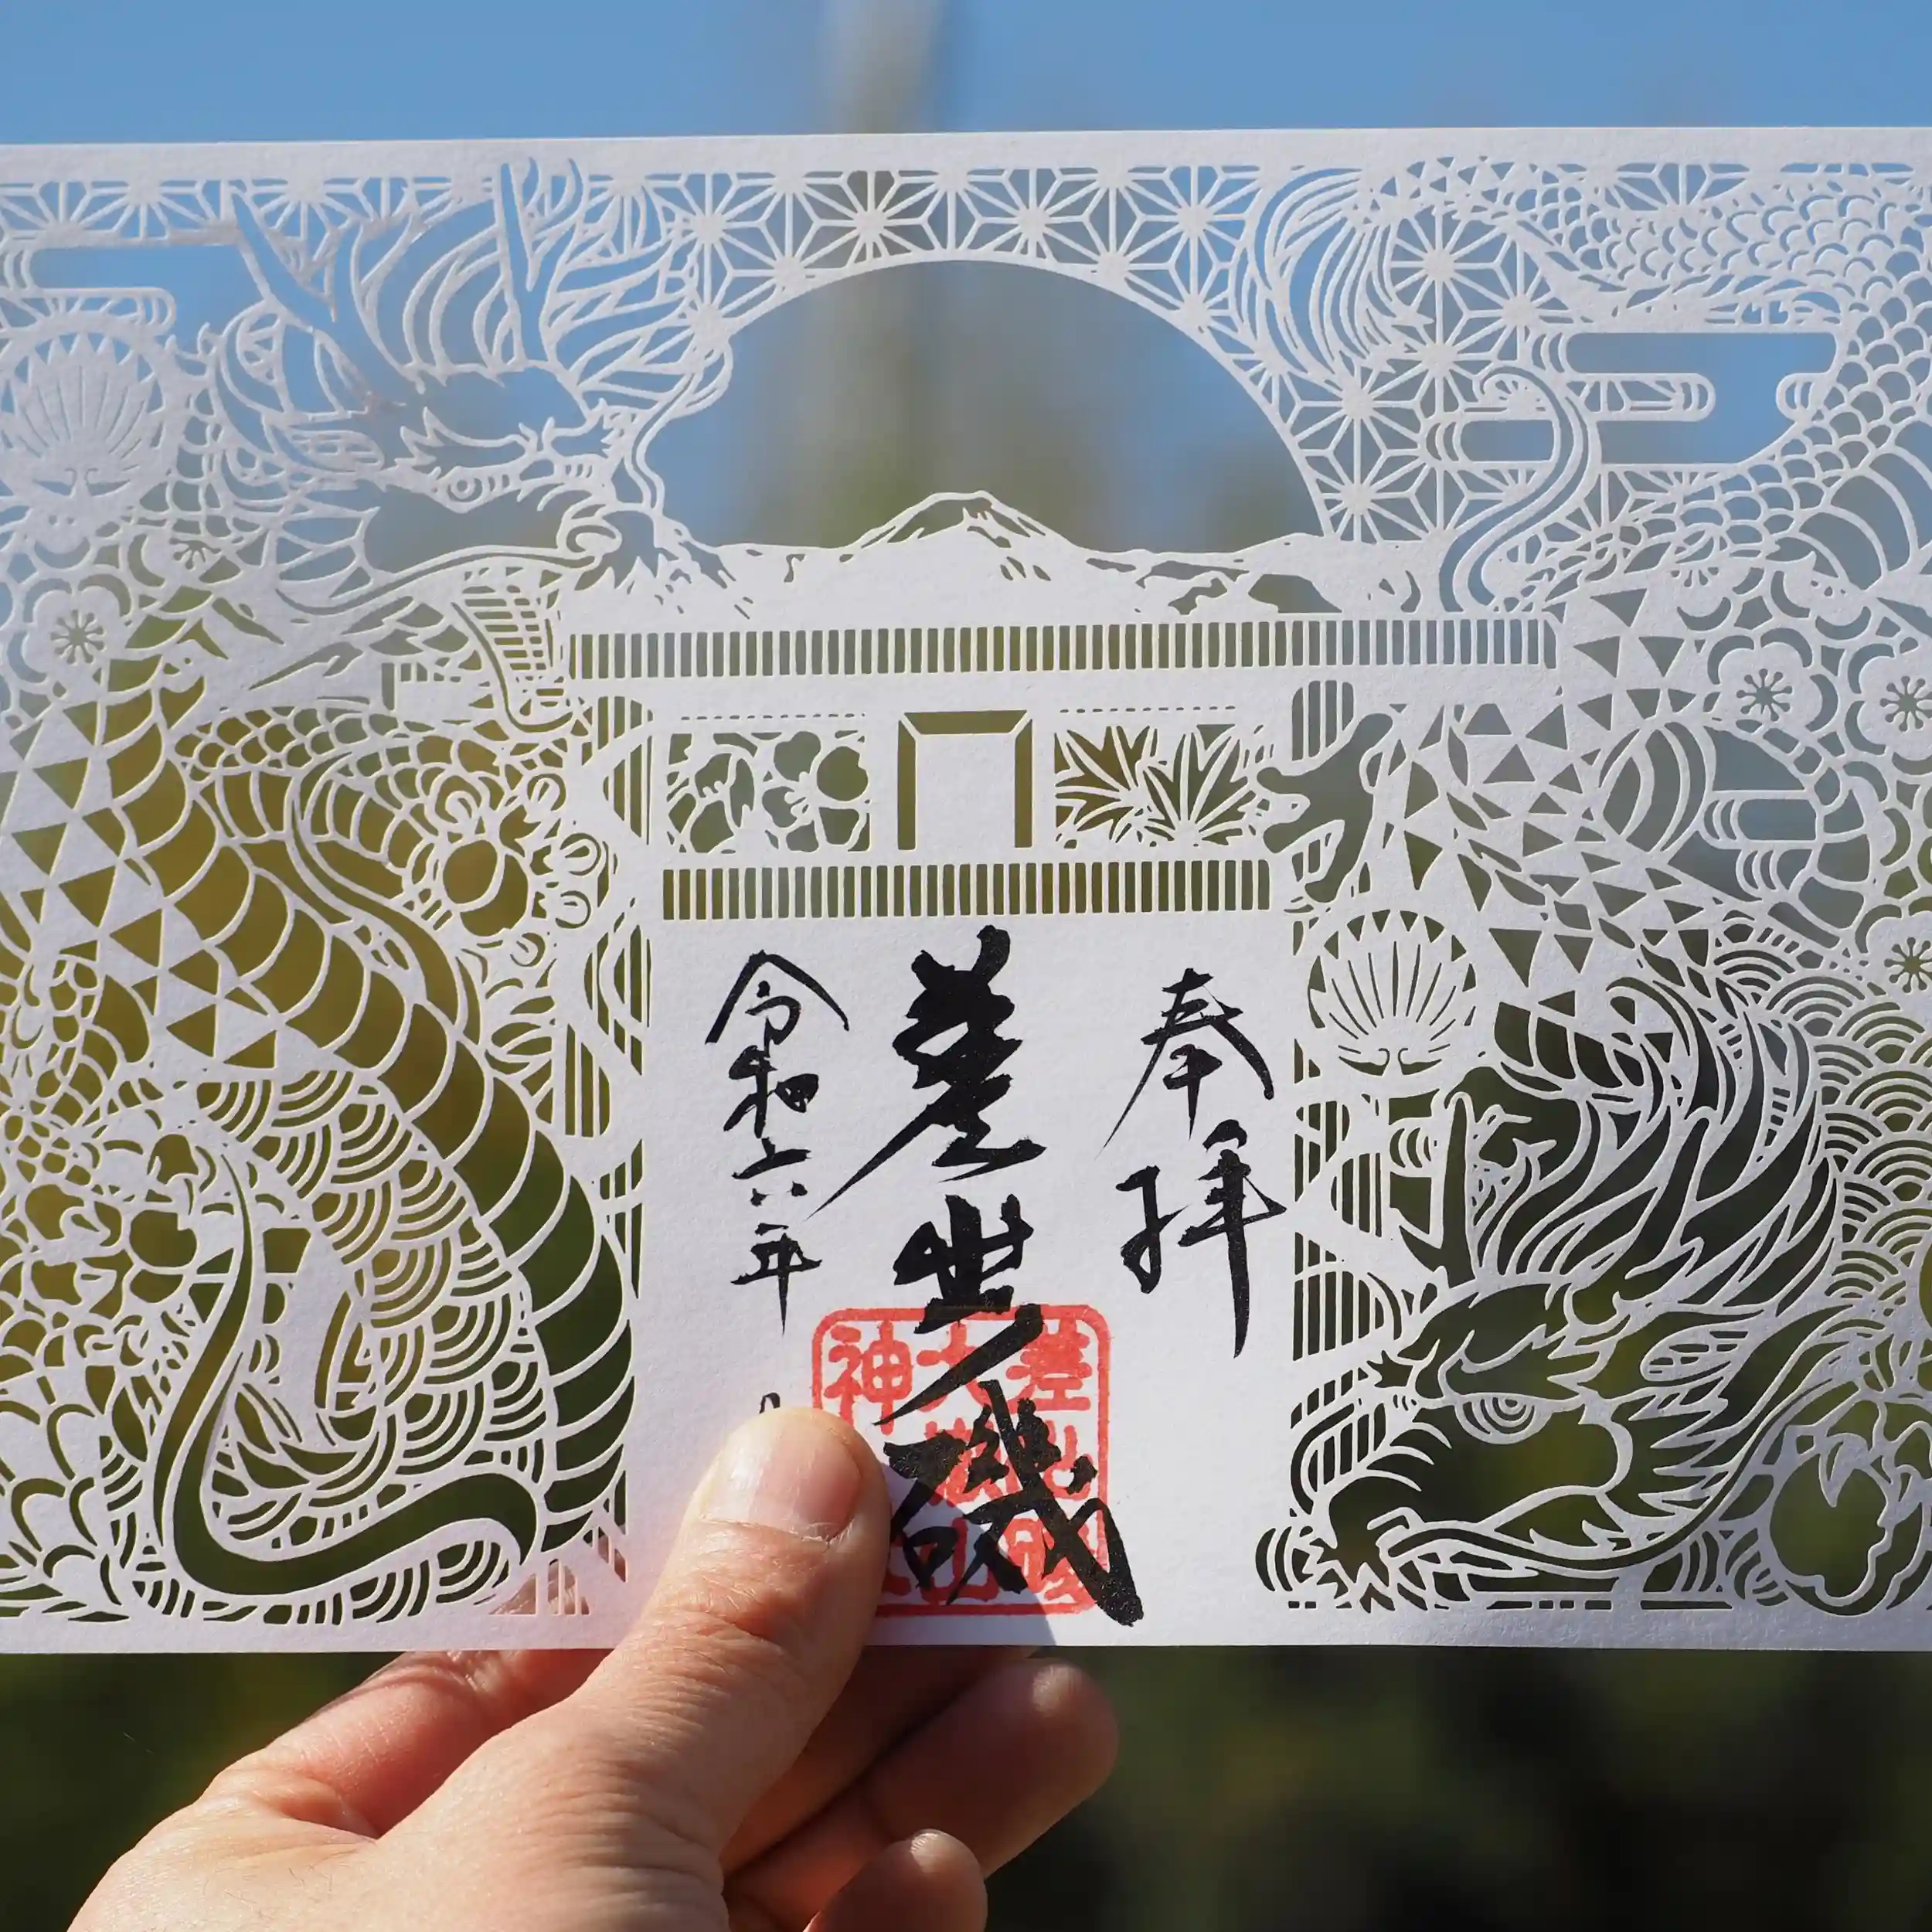 奉拝
差出ノ磯
令和六年
差出磯
大嶽山
神